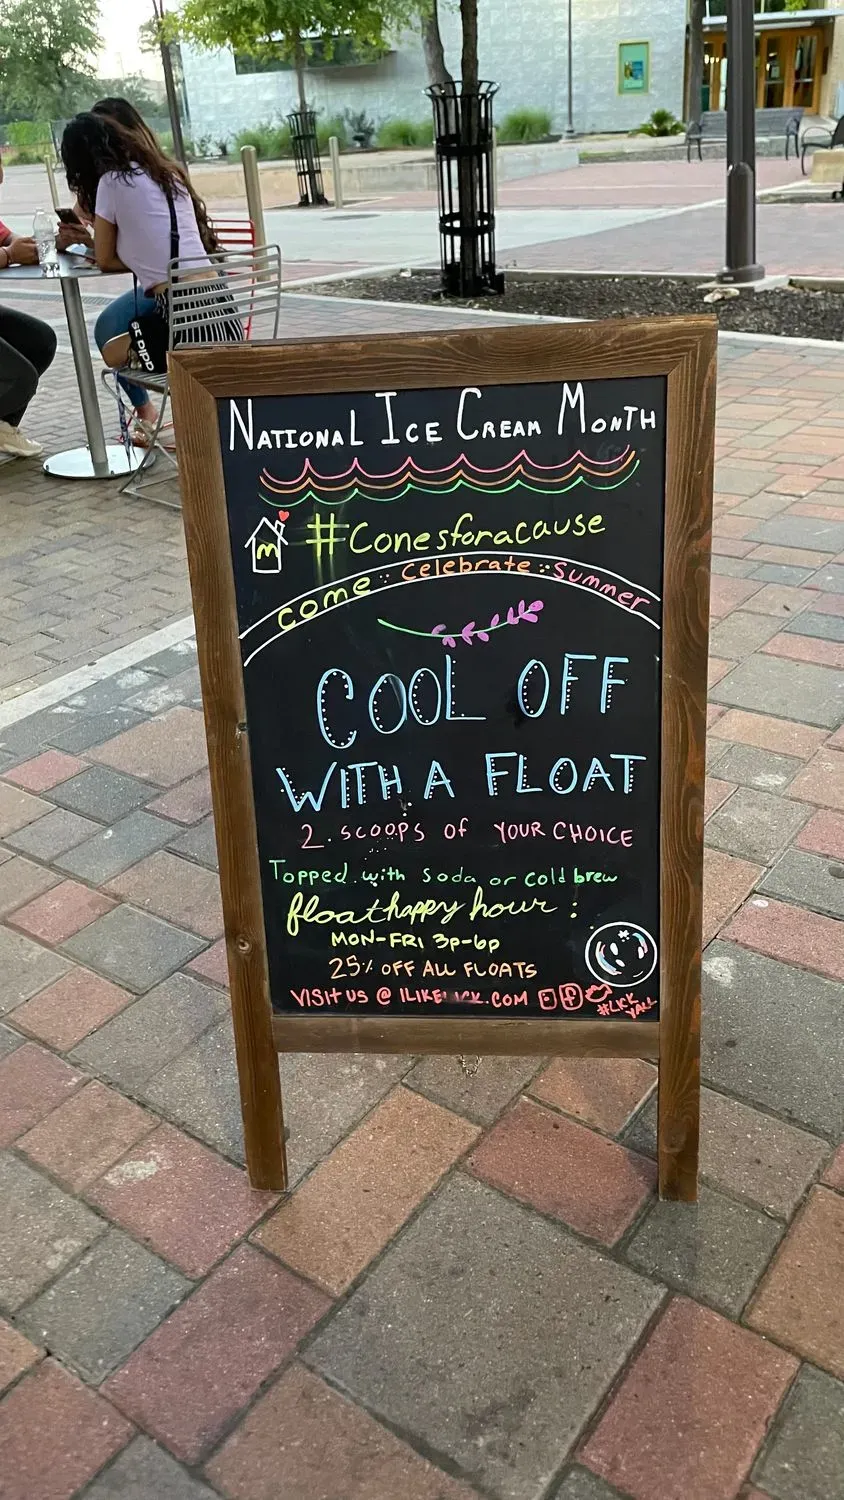 NATIONAL ICE CREAM MONTH
#Conesforacause
M
come :: celebrate :: summer
COOL OFF
WITH A FLOAT
2 . SCOOPS OF YOUR CHOICE
Topped with soda or cold brew
float happy hour :
MON-FRI 3p-6p
25% OFF ALL FLOATS
VISIT US @ ILIKELICK.COM
#LICK
YALL